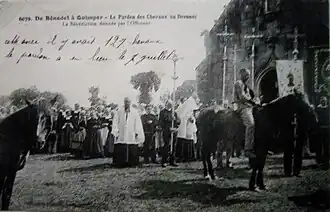 6079. De Bénodet à Quimper - Le Pardon des Chevaux au Drennec
La Bénédiction donnée par l'Officiant
cette année il y avait 127 chevaux
le pardon a eu lieu le 2 juillet